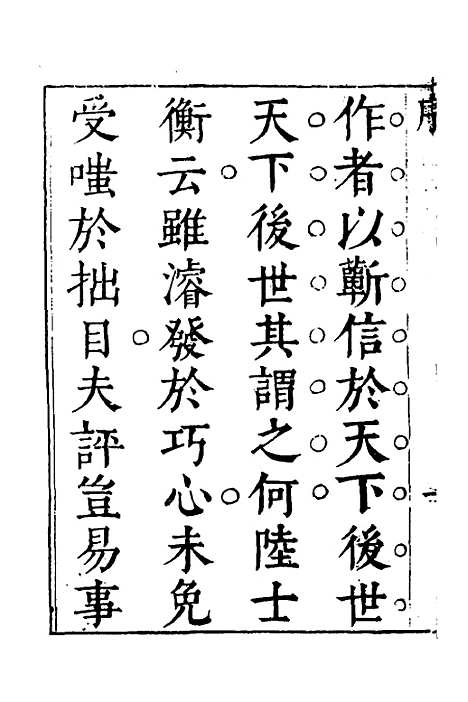 序
作者以蘄信於天下後世
天下後世其謂之何陸士
衡云雖濬發於巧心未免
受嗤於拙目夫評豈易事